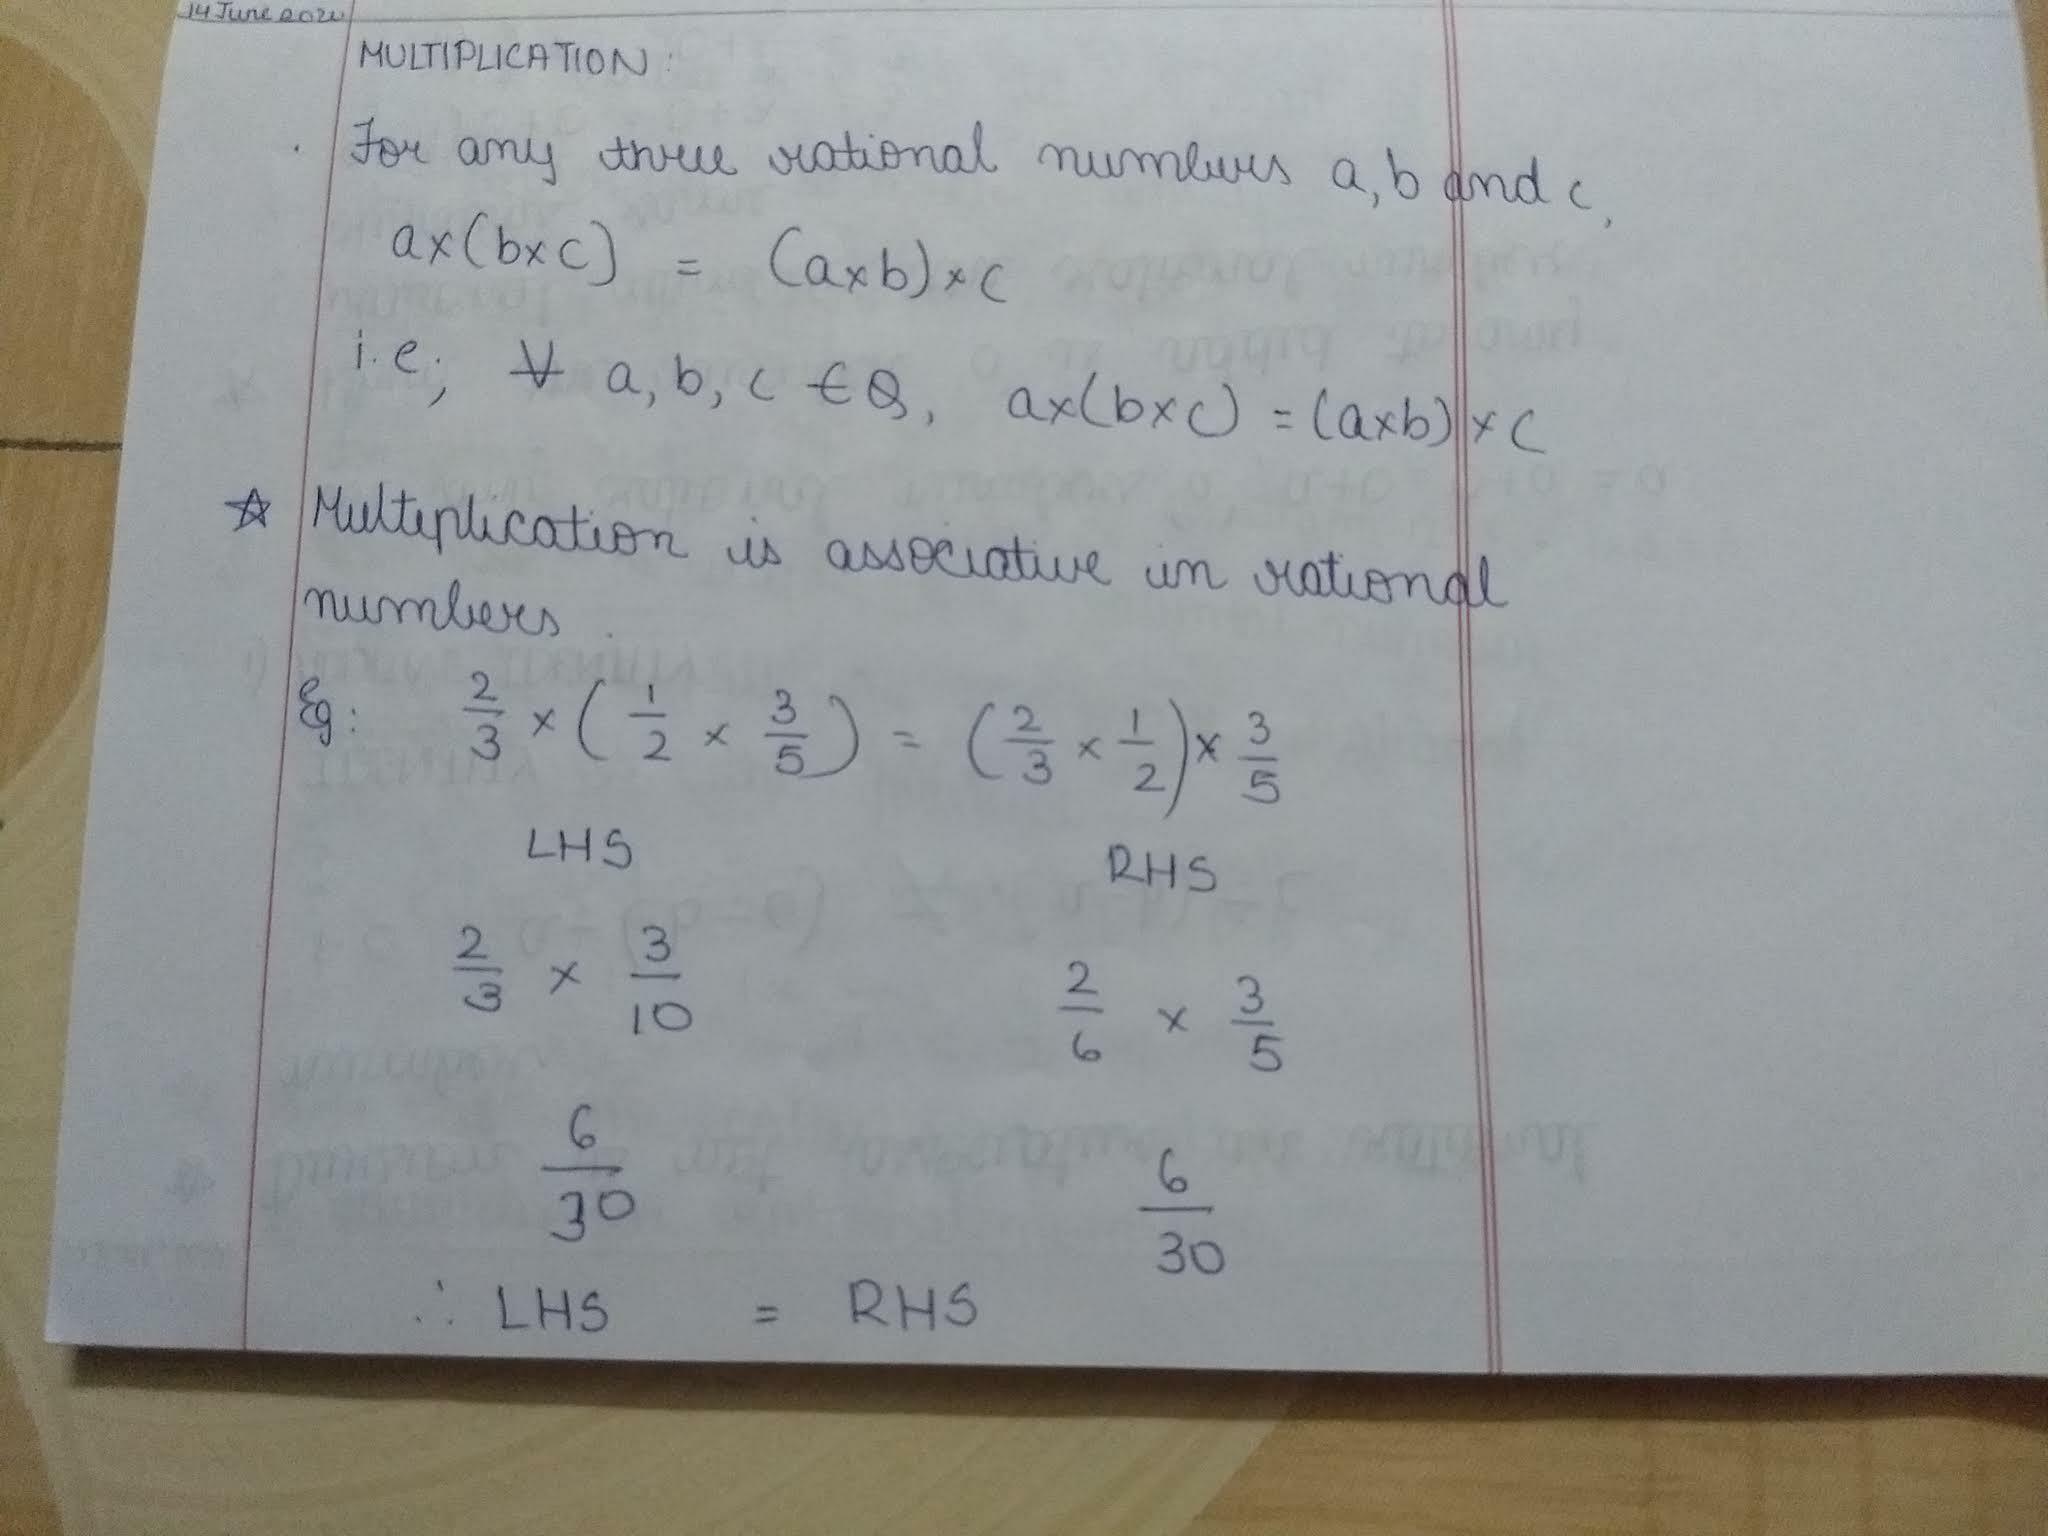 14 June 202
MULTIPLICATION:
. For any three rational numbers a, b and c,
a×(b×c) = (a×b)×c
i.e; ∀ a, b, c ∈ Q, a×(b×c) = (a×b)×c
☆ Multiplication is associative in rational
numbers.
Eg: 2/3 × (1/2 × 3/5) = (2/3 × 1/2) × 3/5
LHS RHS
2/3 × 3/10 2/6 × 3/5
6/30 6/30
∴ LHS = RHS